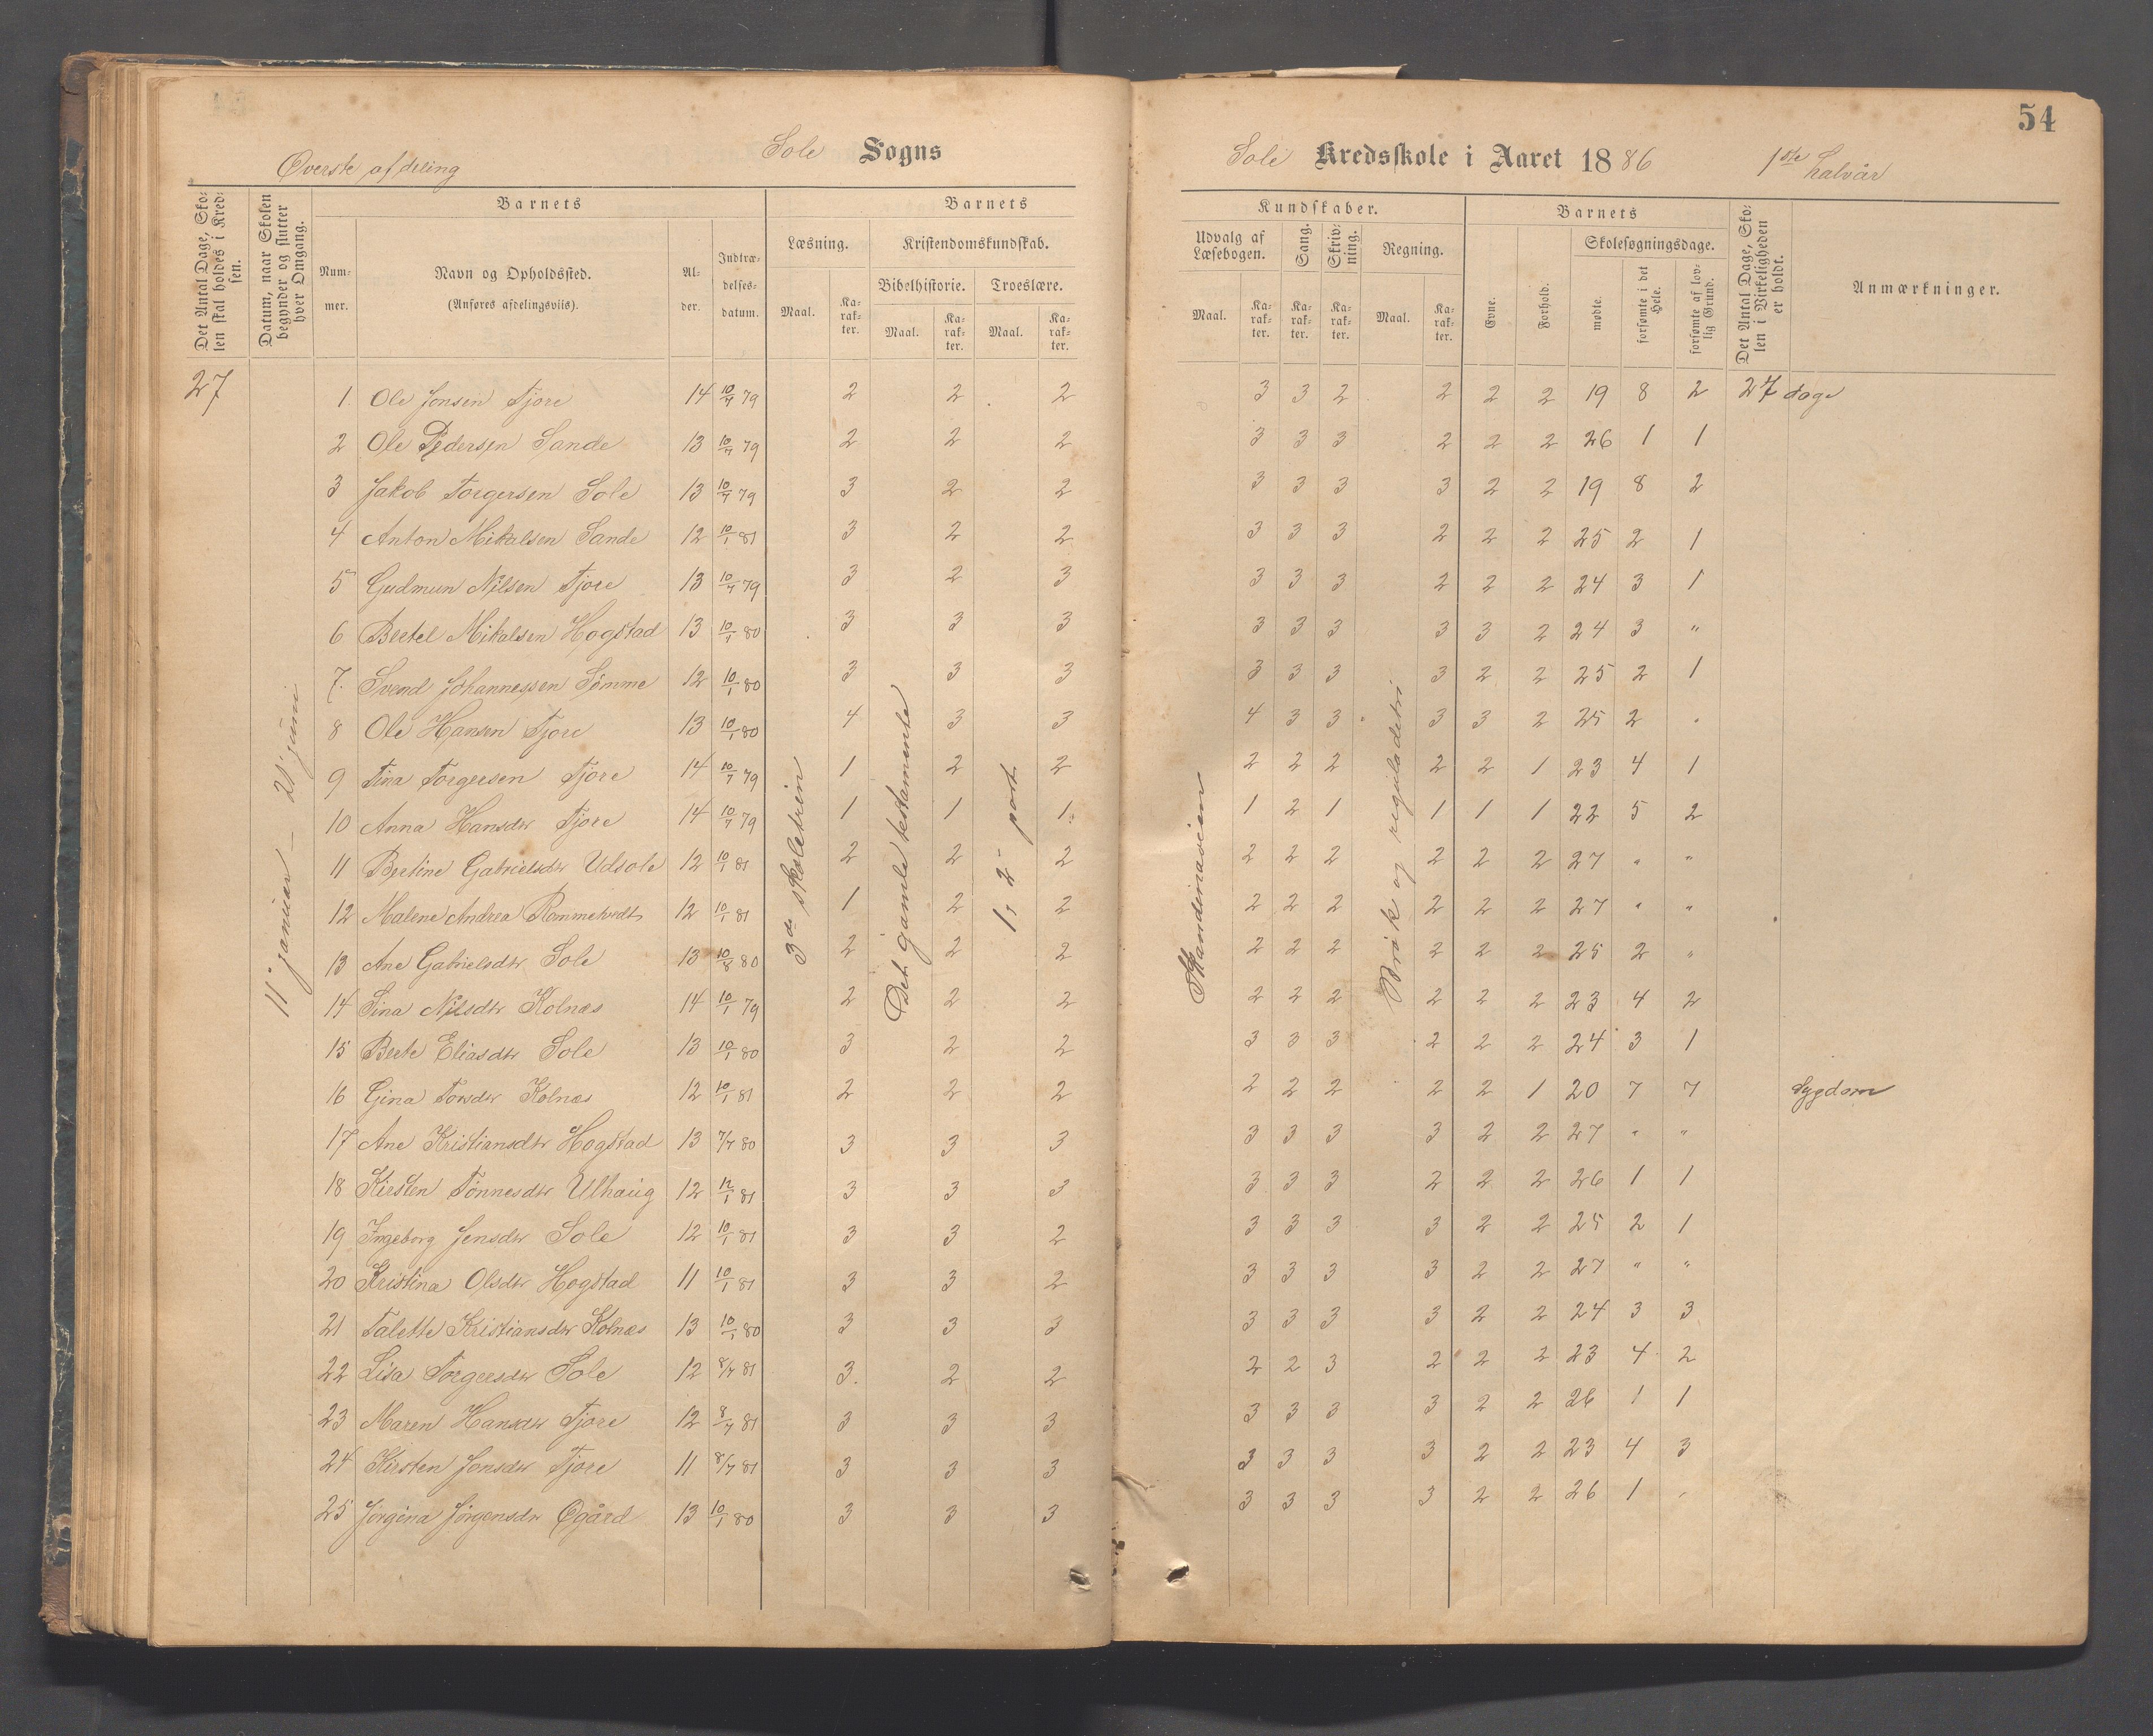 54
Sole Sogns
Sole Kredsskole i Aaret 1886 1ste halvår
Øverste afdeling
Det Antal Dage, Skolen skal holdes i Kredsen.
Datum, naar Skolen begynder og slutter hver Omgang.
Barnets
Nummer.
Navn og Opholdssted.
(Anføres afdelingsviis).
Alder.
Indtrædelsesdatum.
Barnets
Læsning.
Maal.
Karakter.
Kristendomskundskab.
Bibelhistorie.
Maal.
Karakter.
Troeslære.
Maal.
Karakter.
Kundskaber.
Udvalg af Læsebogen.
Maal.
Karakter.
Sang.
Karakter.
Skrivning.
Karakter.
Regning.
Maal.
Karakter.
Barnets
Evne.
Forhold.
Skolesøgningsdage.
mødte.
forsømte i det Hele.
forsømte af lovlig Grund.
Det Antal Dage, Skolen i Virkeligheden er holdt.
Anmærkninger.
27
11' januar – 21' juni
3de skoletrin
Det gamle testamente
1, 2' part
Skandinavien
Brøk og reguladetri
1 Ole Jonsen Tjore 14 10/7 79 2 2 2 3 3 2 2 2 2 19 8 2 27 dage
2 Ole Pedersen Sande 13 10/7 79 2 2 2 3 3 3 2 2 2 26 1 1
3 Jakob Torgersen Sole 13 10/7 79 3 2 2 3 3 3 3 2 2 19 8 2
4 Anton Mikalsen Sande 12 10/1 81 3 2 2 3 3 3 2 2 2 25 2 1
5 Gudmun Nilsen Tjore 13 10/7 79 3 2 3 3 3 3 2 2 2 24 3 1
6 Bertel Mikalsen Hogstad 13 10/1 80 3 3 3 3 3 3 3 3 2 24 3 "
7. Svend Johannessen Sømme 12 10/1 80 3 3 3 3 3 3 3 2 2 25 2 1
8 Ole Hansen Tjore 13 10/1 80 4 3 3 4 3 3 3 3 2 25 2 "
9 Tina Torgersen Tjore 14 10/7 79 1 2 2 2 2 2 2 2 1 23 4 1
10 Anna Hansdtr Tjore 14 10/7 79 1 1 1 1 2 1 1 1 1 22 5 2
11 Bertine Gabrielsdtr Udsole 12 10/1 81 2 2 2 2 2 2 2 2 2 27 " "
12 Malene Andrea Rommetvedt 12 10/1 81 1 2 2 2 2 2 2 2 2 27 " "
13 Ane Gabrielsdtr Sole 13 10/8 80 2 2 2 2 2 2 2 2 2 25 2 "
14 Sina Nilsdtr Kolnæs 14 10/1 79 2 2 2 2 2 2 2 2 2 23 4 2
15 Berte Eliasdtr Sole 13 10/1 80 3 2 2 3 3 3 2 2 2 24 3 1
16 Gina Torsdtr Kolnæs 12 10/1 81 2 2 2 2 2 2 2 2 1 20 7 7 Sygdom
17 Ane Kristiansdtr Hogstad 13 7/7 80 3 3 3 3 3 3 3 2 2 27 " "
18 Kirsten Tønnesdtr Ulhaug 12 12/1 81 3 3 3 3 3 3 2 2 2 26 1 1
19 Ingeborg Jensdtr Sole 12 10/1 81 3 3 2 3 3 3 3 2 2 25 2 1
20 Kristina Olsdtr Hogstad 11 10/1 81 3 3 2 3 3 3 3 2 2 27 " "
21 Talette Kristiansdtr Kolnæs 13 10/1 80 3 3 3 3 3 3 3 2 2 24 3 3
22 Lisa Torgersdtr Sole 12 8/7 81 3. 2 2 2 2 3 2 2 2 23 4 2
23 Maren Hansdtr Tjore 12 8/7 81 3 3 3 3 3 3 3 2 2 26 1 1
24 Kirsten Jonsdtr Tjore 11 8/7 81 3 3 3 3 3 3 3 2 2 23 4 3
25 Jørgina Jørgensdtr Øgård 13 10/1 80 3 3 3 3 3 3 3 2 2 26 1 "